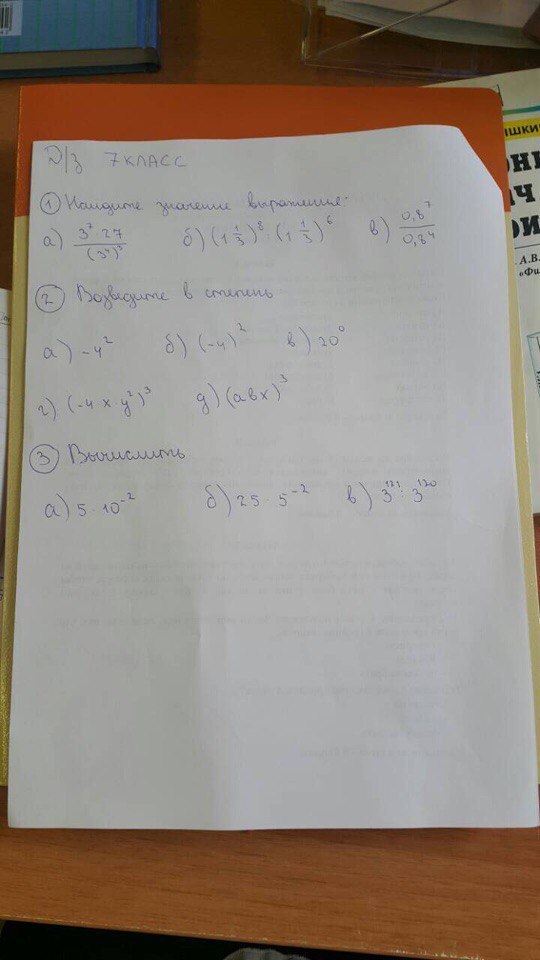 Д/з 7 КЛАСС
① Найдите значение выражения:
а) 3⁷·27 / (3⁴)³ б) (1 1/3)⁸ : (1 1/3)⁶ в) 0,8⁷ / 0,8⁴
② Возведите в степень
а) -4² б) (-4)² в) 20⁰
г) (-4x·y²)³ д) (авх)³
③ Вычислить
а) 5·10⁻² б) 25·5⁻² в) 3¹²¹ : 3¹²⁰
А.В.